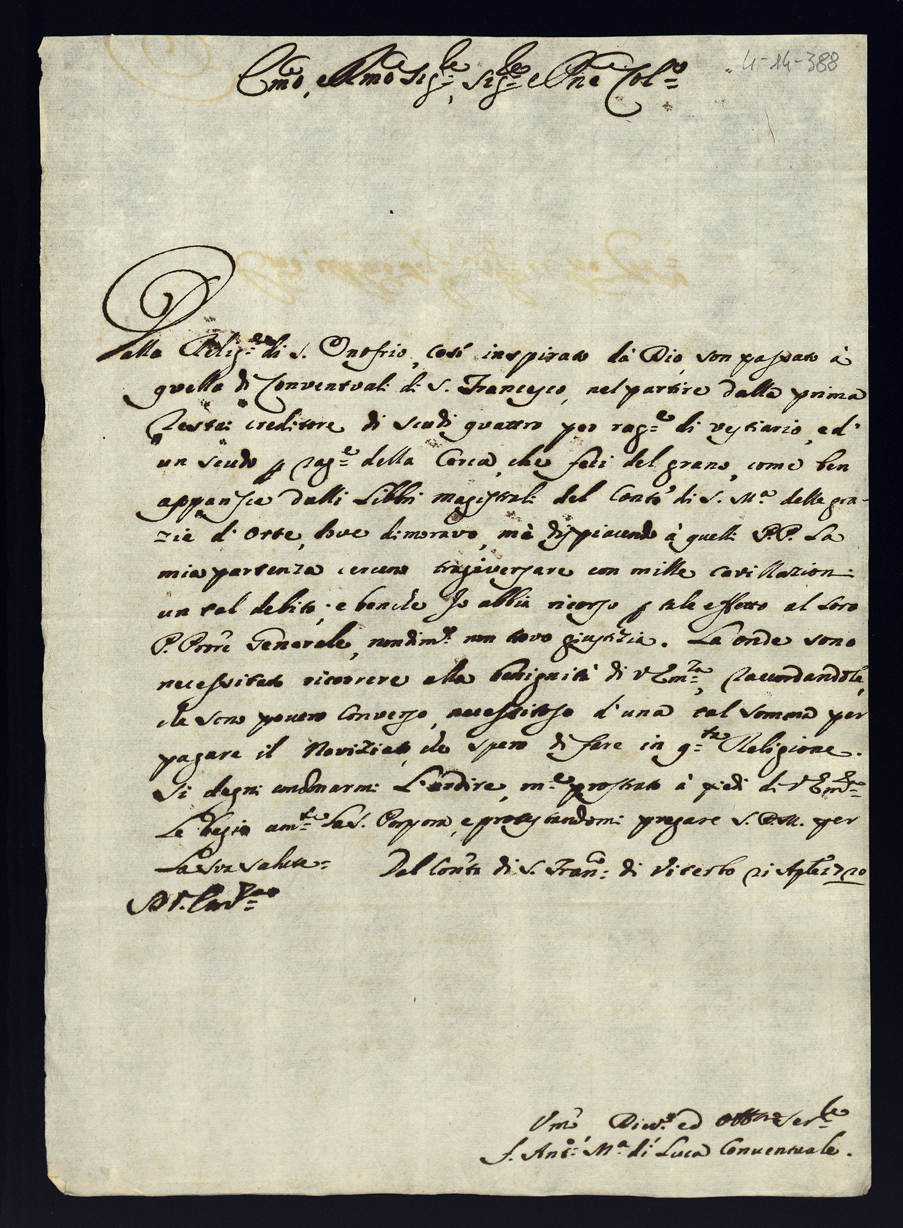 4-14-388
Emo, e Rmo Sig.re, Sig.re e Pne Col.o
Dalla Relig.ne di S. Onofrio, così inspirato dà Dio, son passato à
quella di Conventuali di S. Francesco, nel partire dalla prima
restai creditore di scudi quattro per rag.e di vestiario, ed'
un scudo p rag.e della Cerca, che feci del grano, come ben
apparisce dalli Libbri magistrali del Conto di S. M.a delle gra-
zie d'Orte, dove dimoravo, mà dispiacendo à quelli P.P. La
mia partenza cercono trasversare con mille cavillazioni
un tal debito; e benche Io abbia ricorso p tale effetto al Loro
P. Prore Generale, nondim.o non trovo giustizia. La onde sono
necessitato ricorrere alla benignità di V. Em.za, racordandole,
che sono povero Converso, necessitoso d'una tal somma per
pagare il Noviziato, che spero di fare in q.ta Religione.
Si degni condonarmi L'ardire, m.e prostrato à piedi di V. Em.za
Le begio um.te la S. Porpora, e protestandomi pregare S. D. M. per
La sua salute. Dal Conto di S. Fran.o di Viterbo 21 Ag.to 1720
Di V. Em.za
Vmo Divo. ed Obbmo Ser.le
f. Ant.o M.a di Luca Conventuale.